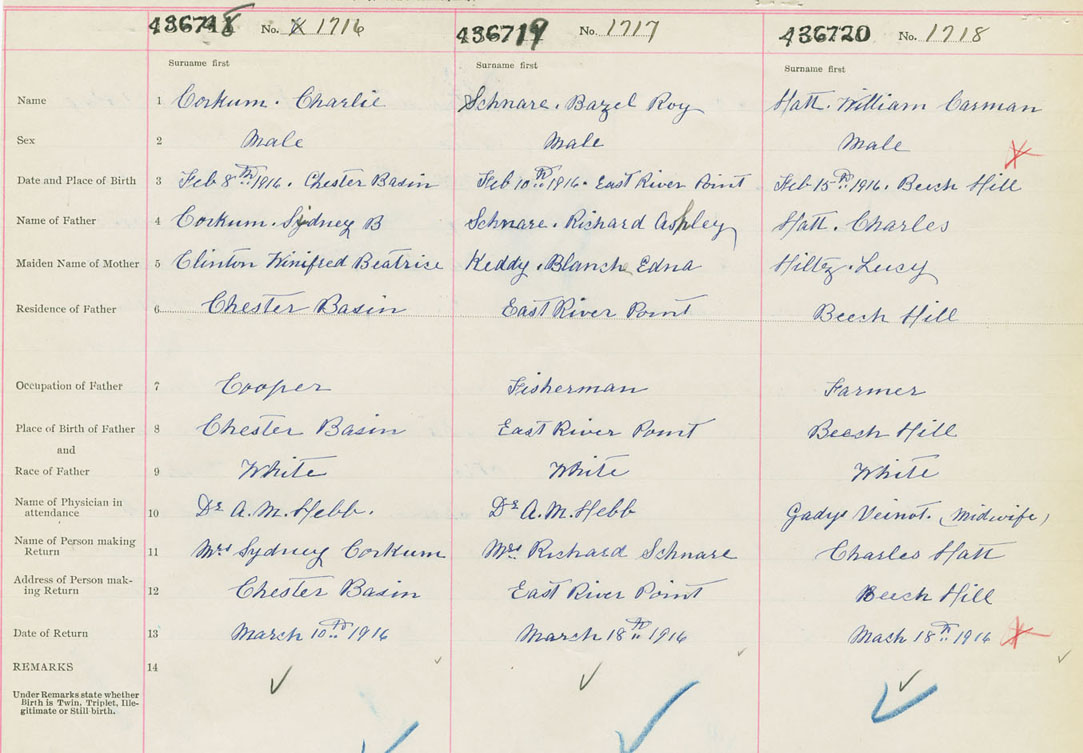 436718 No. 1716 436719 No. 1717 436720 No. 1718
Surname first Surname first Surname first
Name 1 Corkum. Charlie Schnare. Bazel Roy Hatt. William Carman
Sex 2 Male Male Male
Date and Place of Birth 3 Feb 8th 1916. Chester Basin Feb 10th 1916. East River Point Feb 15th 1916. Beech Hill
Name of Father 4 Corkum. Sydney B Schnare. Richard Ashley Hatt. Charles
Maiden Name of Mother 5 Clinton Winifred Beatrice Keddy. Blanch Edna Hiltz. Lucy
Residence of Father 6 Chester Basin East River Point Beech Hill
Occupation of Father 7 Cooper Fisherman Farmer
Place of Birth of Father 8 Chester Basin East River Point Beech Hill
and
Race of Father 9 White White White
Name of Physician in
attendance 10 Dr A.M. Hebb. Dr A.M. Hebb Gadys Veinot. (Midwife)
Name of Person making
Return 11 Mrs Sydney Corkum Mrs. Richard Schnare Charles Hatt
Address of Person mak-
ing Return 12 Chester Basin East River Point Beech Hill
Date of Return 13 March 10th 1916 March 18th 1916 Mach 18th 1916
REMARKS 14
Under Remarks state whether
Birth is Twin, Triplet, Ille-
gitimate or Still-birth.